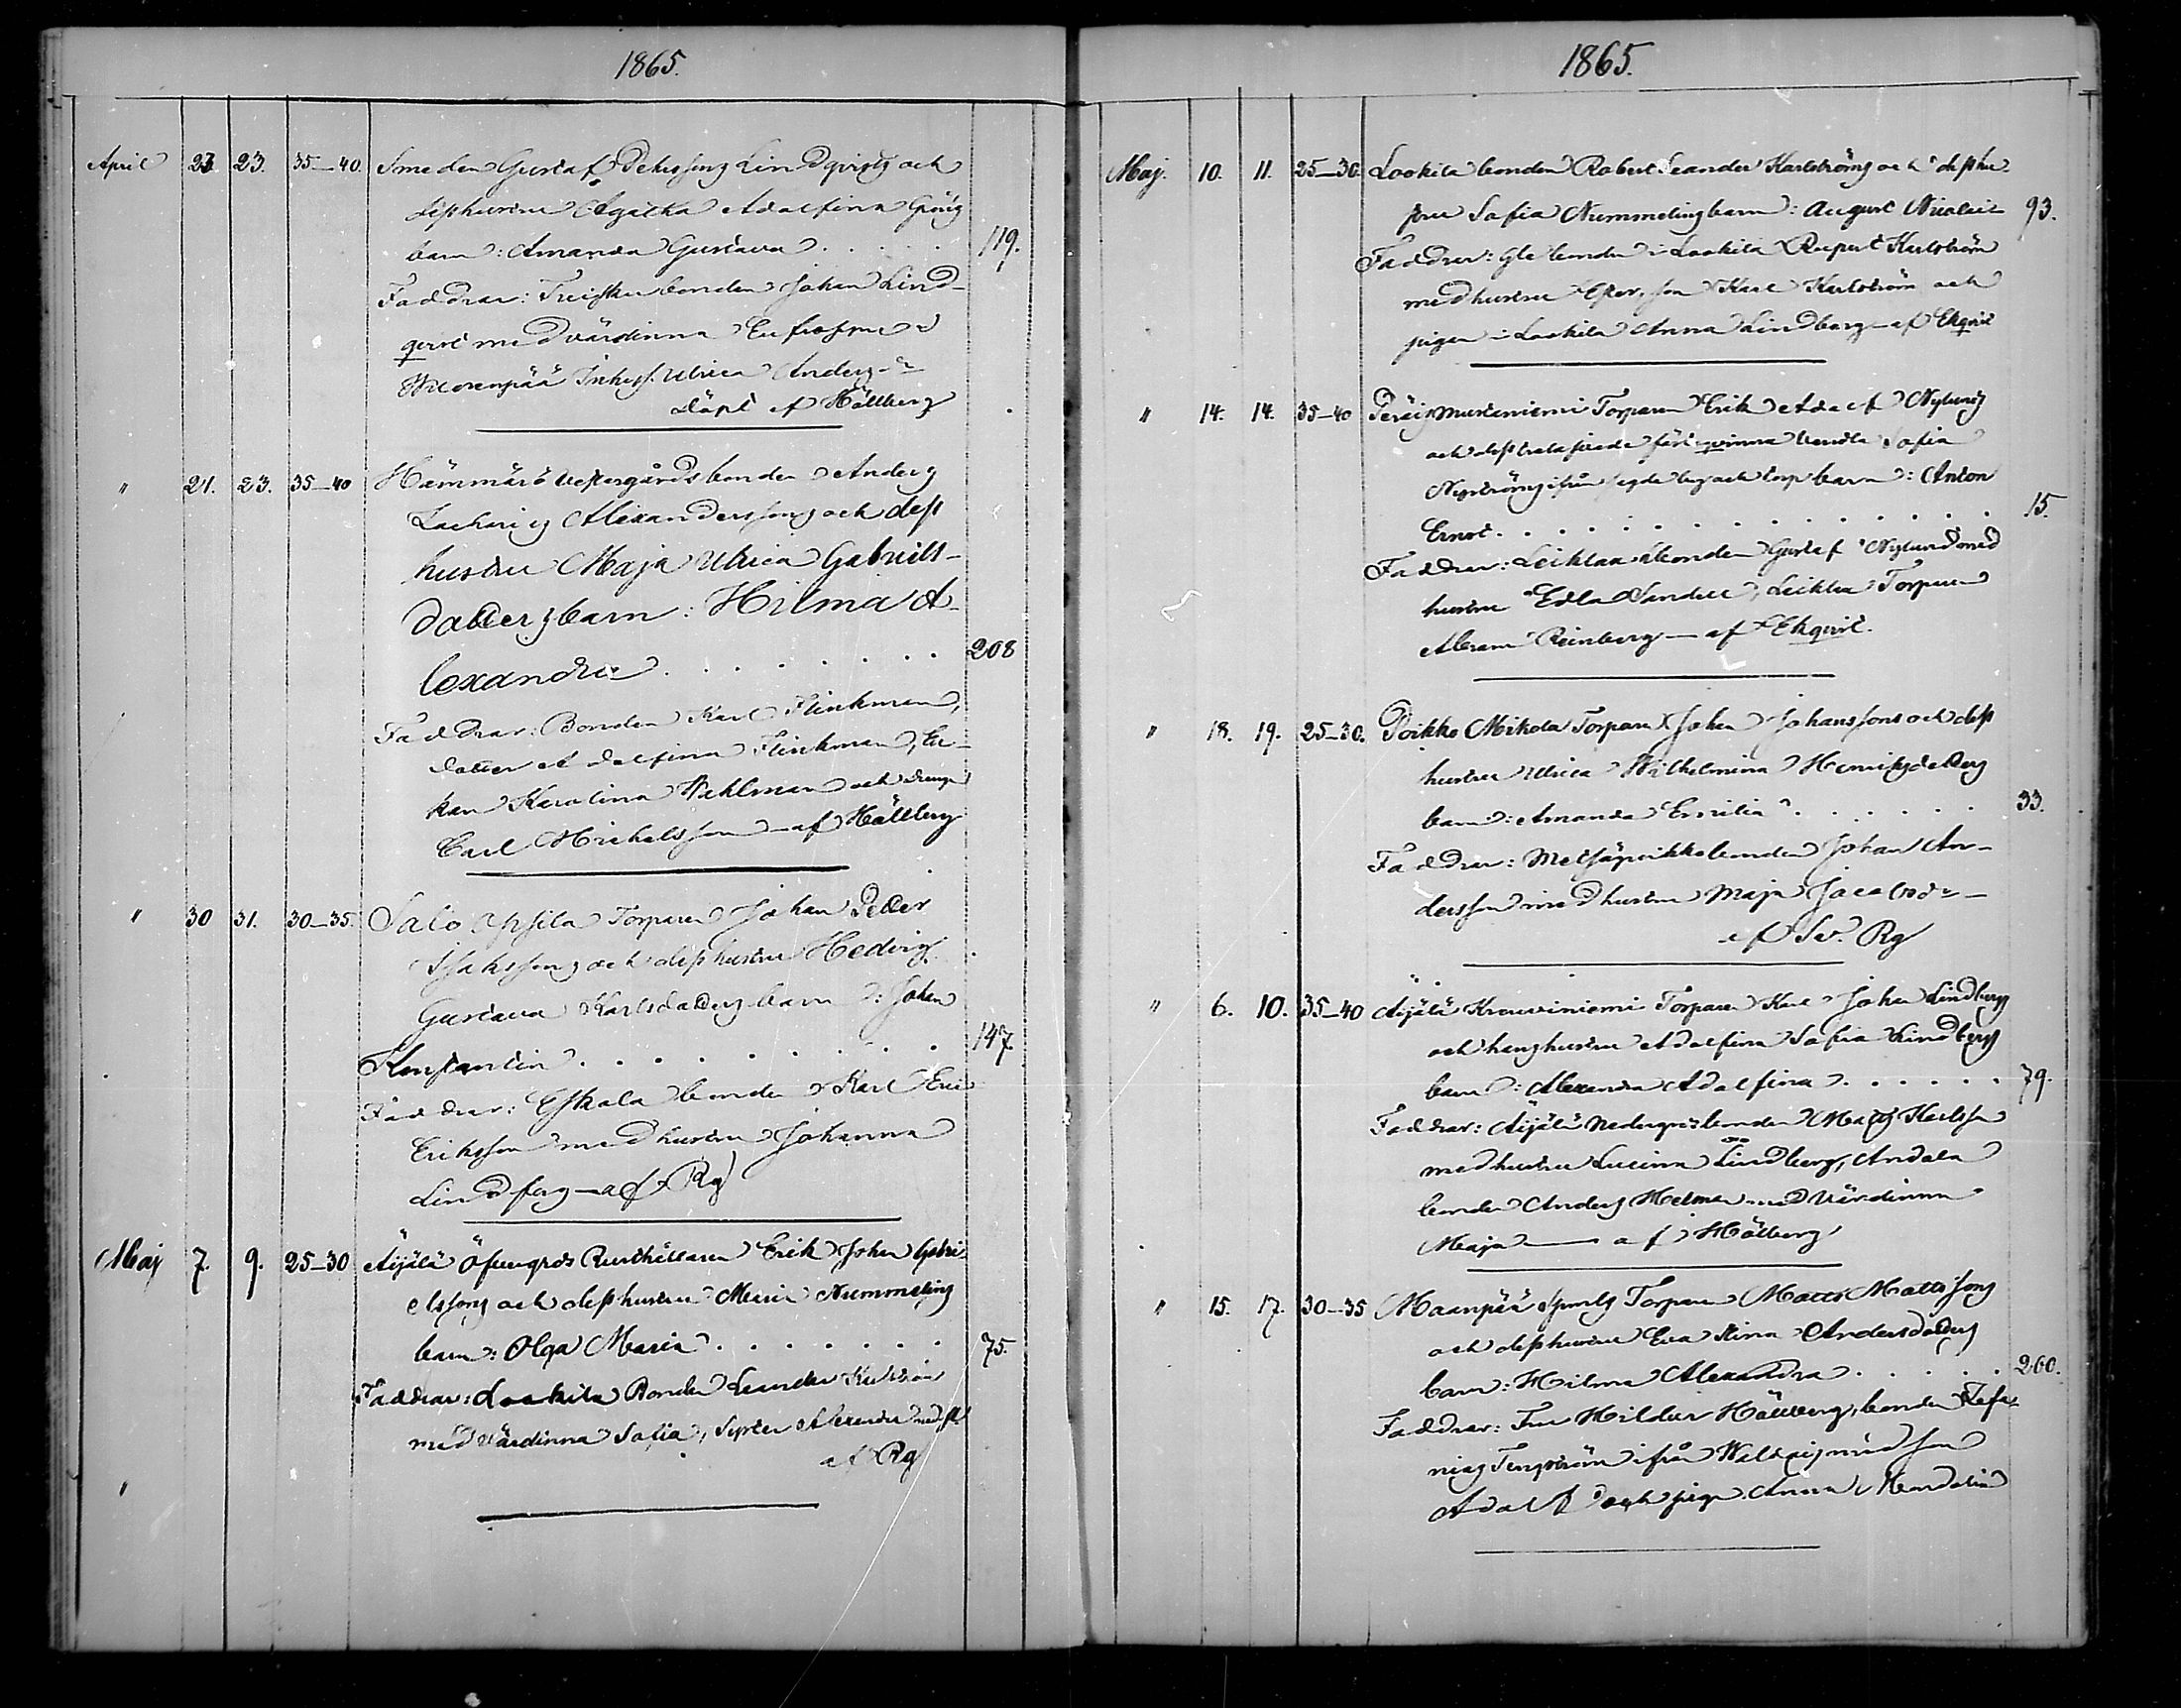 1865.
April 23. 23. 35—40. Smeden Gustaf Peterssons Lindqvists och
dess hustru Agatha Adolfina
barn: Amanda Gustava . . . . . 119.
Faddrar: bonden Johan Lind-
qvist med värdinna Eufrosyne
Ulrica Anders dr
döpt af Hällberg
" 21. 23. 35—40 Hämmärö Westergårds bonden Anders
Zacharias Alexanderssons och dess
hustru Maja Ulrica Gabriels-
dotters barn: Hilma A-
lexandra . . . . . . . . 208
Faddrar: Bonden Karl Flinkman,
dotter Adolfina Flinkman, En-
kan Karolina Wahlman och dreng
Carl Michelsson — af Hällberg
" 30 31. 30—35. Salo Torparen Johan Petter
Isakssons och dess hustru Hedvig
Gustava Karlsdotters barn: Johan
Konstantin . . . . . . . . . 147
Faddrar: Eskola bonden Karl Eric
Eriksson med hustru Johanna
Lindfors — af Rg
Maj 7. 9. 25—30 Äijälä Öfvergårds Rusthållaren Erik Johan Gabri-
elssons och dess hustru Maria Nummelins
barn: Olga Maria . . . . . . . 75.
Faddrar: Laakila Bonden Leander Karlström
med värdinna Sofia, Syster Alexandra
af Rg
"
1865.
Maj. 10. 11. 25—30. Laokila bonden Robert Leander Karlströms och dess hu-
stru Sofia Nummelins barn: August Nicolai 93.
Faddrar: Gle bonden i Laokila Rupert Karlström
med hustru Ester, son Karl Karlström och
pigan i Laokila Anna Lindberg — af Ekqvist
" 14. 14. 35—40 Peräis Mustaniemi Torparen Erik Adolf Nylunds
och dess qvinna Vendla Sofia
Nyströms ifrån torp barn: Anton
Ernst . . . . . . . . . . . . . . . 15.
Faddrar: Leiklax bonden Gustaf Nylund med
hustru Edla Sandell, Leiklax Torparen
Abram Reinberg — af Ekqvist.
" 18. 19. 25—30. Poikko Mikola Torparen Johan Johanssons och dess
hustru Ulrica Wilhelmina Henriksdotters
barn: Amanda Emilia . . . . . . 33.
Faddrar: Metsäpoikko bonden Johan An-
dersson med hustru Maja Jacobsdr —
af Sv. Rg
" 6. 10. 35—40 Äijälä Krouviniemi Torparen Karl Johan Lindbergs
och hans hustru Adolfina Sofia Lindbergs
barn: Alexandra Adolfina . . . . . . 79.
Faddrar: Äijälä Nedergårds bonden Matts Karlsson
med hustru Lucina Lindberg, Andala
bonden Anders Helman med Värdinna
Maja — af Hälberg
" 15. 17. 30—35 Maanpää Torparen Matts Mattssons
och dess hustru Eva Stina Andersdotters
barn: Hilma Alexandra . . . . . . 260.
Faddrar: Fru Hildur Hällberg, bonden Stefa-
nias Tengström ifrån med son
Adolf och piga Anna Mandalia